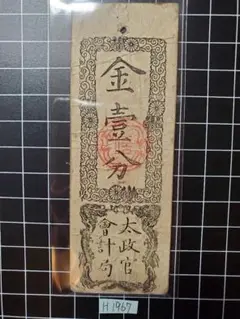 金壹分
太政官
會計局
H1967